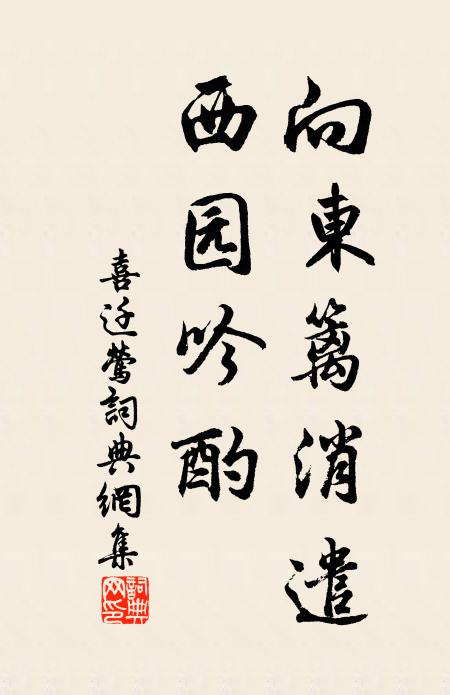 向東篱消遣
西园吟酌
喜迁莺詞典網集
詞典网印